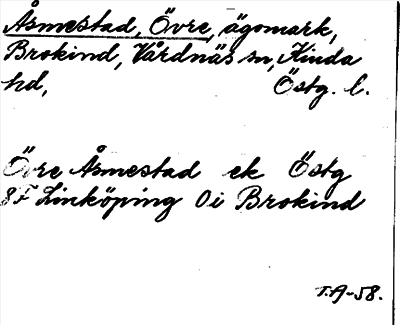 Åsmestad, Övre, ägomark,
Brokind, Vårdnäs sn, Kinda
hd, Östg. l.
Övre Åsmestad ek Östg
8F Linköping 0i Brokind
T.A-58.